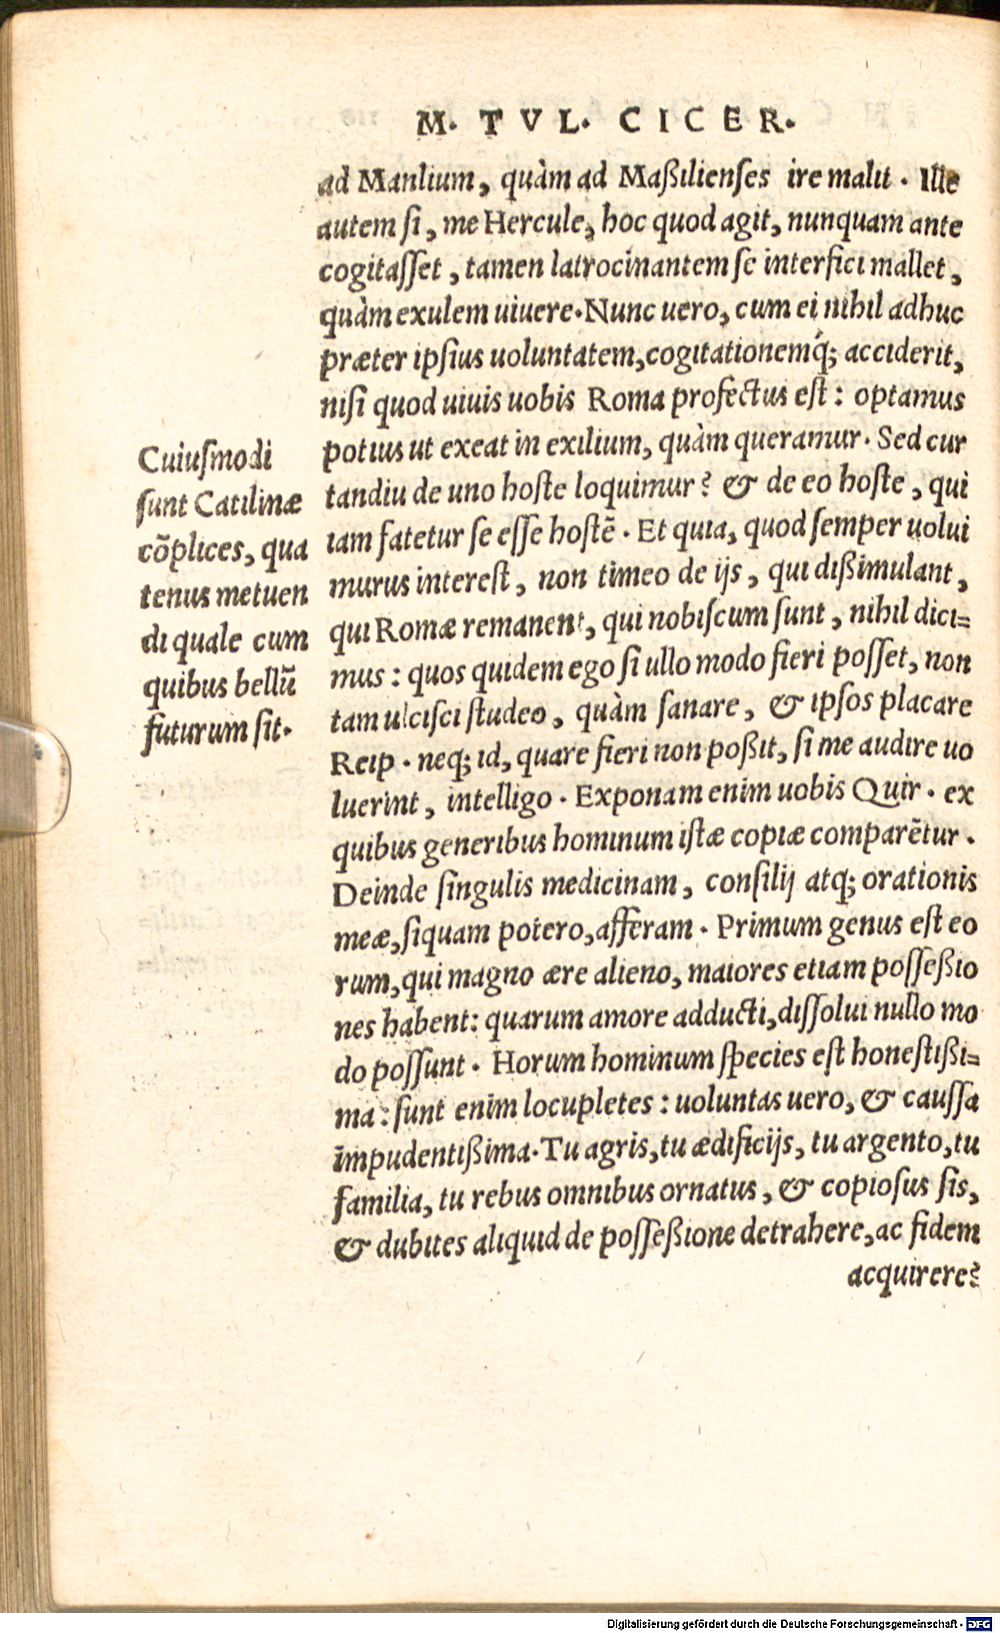 M. TVL. CICER.
ad Manlium, quàm ad Maßilienses ire malit. Ille
autem ſi, me Hercule, hoc quod agit, nunquam ante
cogitaſſet, tamen latrocinantem ſe interfici mallet,
quàm exulem uiuere. Nunc uero, cum ei nihil adhuc
præter ipſius uoluntatem, cogitationemq́; acciderit,
niſi quod uiuis uobis Roma profectus eſt: optamus
potius ut exeat in exilium, quàm queramur. Sed cur
tandiu de uno hoſte loquimur? & de eo hoſte, qui
iam fatetur ſe eſſe hoſtẽ. Et quia, quod ſemper uolui
murus intereſt, non timeo de ijs, qui dißimulant,
qui Romæ remanent, qui nobiſcum ſunt, nihil dici=
mus: quos quidem ego ſi ullo modo fieri poſſet, non
tam ulciſci ſtudeo, quàm ſanare, & ipſos placare
Reip. neq; id, quare fieri non poßit, ſi me audire uo
luerint, intelligo. Exponam enim uobis Quir. ex
quibus generibus hominum iſtæ copiæ comparẽtur.
Deinde ſingulis medicinam, conſilij atq; orationis
meæ, ſiquam potero, afferam. Primum genus eſt eo
rum, qui magno ære alieno, maiores etiam poſſeßio
nes habent: quarum amore adducti, diſſolui nullo mo
do poſſunt. Horum hominum ſpecies eſt honeſtißi=
ma: ſunt enim locupletes: uoluntas uero, & cauſſa
impudentißima. Tu agris, tu ædificijs, tu argento, tu
familia, tu rebus omnibus ornatus, & copioſus ſis,
& dubites aliquid de poſſeßione detrahere, ac fidem
acquirere?
Cuiuſmodi
ſunt Catilinæ
cõplices, qua
tenus metuen
di quale cum
quibus bellũ
futurum ſit.
Digitalisierung gefördert durch die Deutsche Forschungsgemeinschaft - DFG